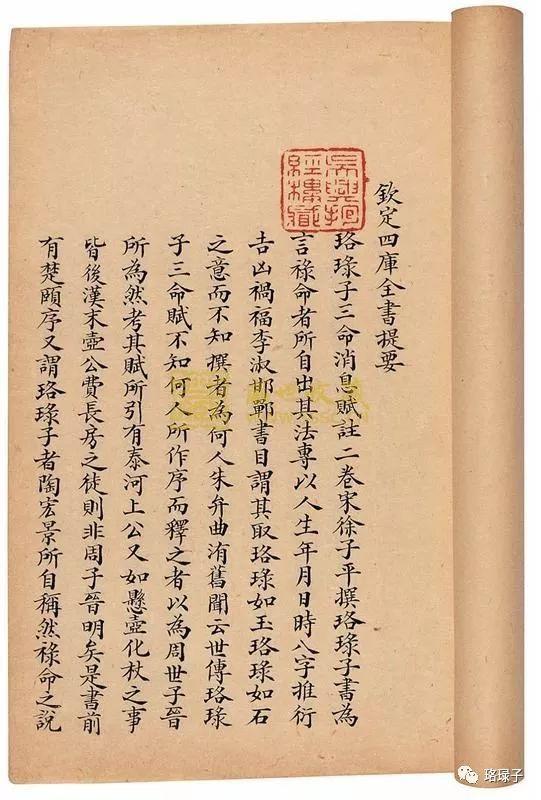 欽定四庫全書提要
珞琭子三命消息賦註二卷宋徐子平撰珞琭子書為
言祿命者所自出其法專以人生年月日時八字推衍
吉凶禍福李淑邯鄲書目謂其取珞琭如玉珞琭如石
之意而不知撰者為何人朱弁曲洧舊聞云世傳珞琭
子三命賦不知何人所作序而釋之者以為周世子晉
所為然考其賦所引有秦河上公又如懸壺化杖之事
皆後漢末壺公費長房之徒則非周子晉明矣是書前
有楚頤序又謂珞琭子者陶宏景所自稱然祿命之說
珞琭子